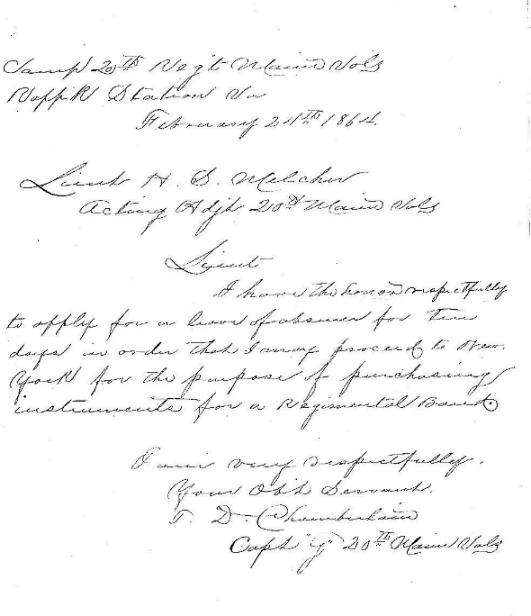 Camp 20th Regt Maine Vols
Rapp R Station Va
February 24th 1864.
Lieut H. S. Melcher
Acting Adjt 20th Maine Vols
Lieut
I have the honor respectfully
to apply for a leave of absence for ten
days in order that I may proceed to New
York for the purpose of purchasing
instruments for a Regimental Band.
I am very respectfully.
Your Obt Servant.
T. D. Chamberlain
Capt "G" 20th Maine Vols